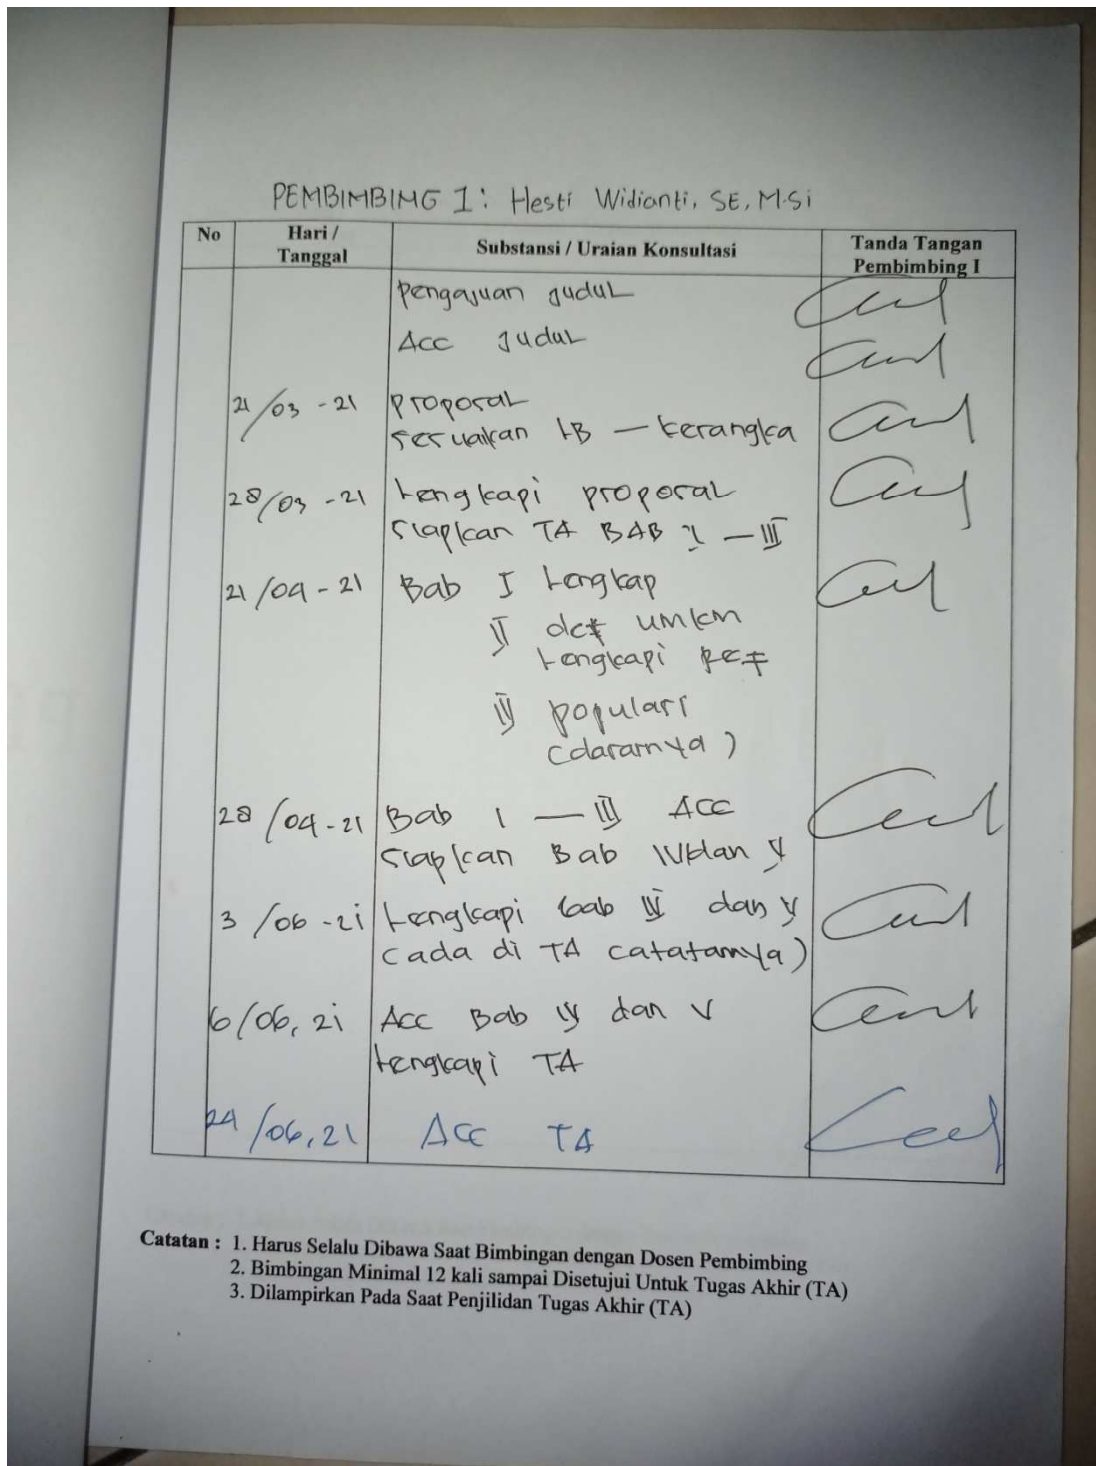 PEMBIMBING 1: Hesti Widianti, SE, M.Si
No
Hari /
Tanggal
Substansi / Uraian Konsultasi
Tanda Tangan
Pembimbing I
Pengajuan judul
Acc judul
21/03-21 Proposal
sesuaikan LB — kerangka
28/03-21 Lengkapi proposal
siapkan TA BAB I — III
21/04-21 Bab I Lengkap
II def umkm
Lengkapi ref
III populasi
(dasarnya)
28/04-21 Bab I — III ACC
siapkan Bab IV dan V
3/06-21 Lengkapi bab IV dan V
(ada di TA catatannya)
6/06, 21 Acc Bab IV dan V
Lengkapi TA
24/06, 21 ACC TA
Catatan : 1. Harus Selalu Dibawa Saat Bimbingan dengan Dosen Pembimbing
2. Bimbingan Minimal 12 kali sampai Disetujui Untuk Tugas Akhir (TA)
3. Dilampirkan Pada Saat Penjilidan Tugas Akhir (TA)